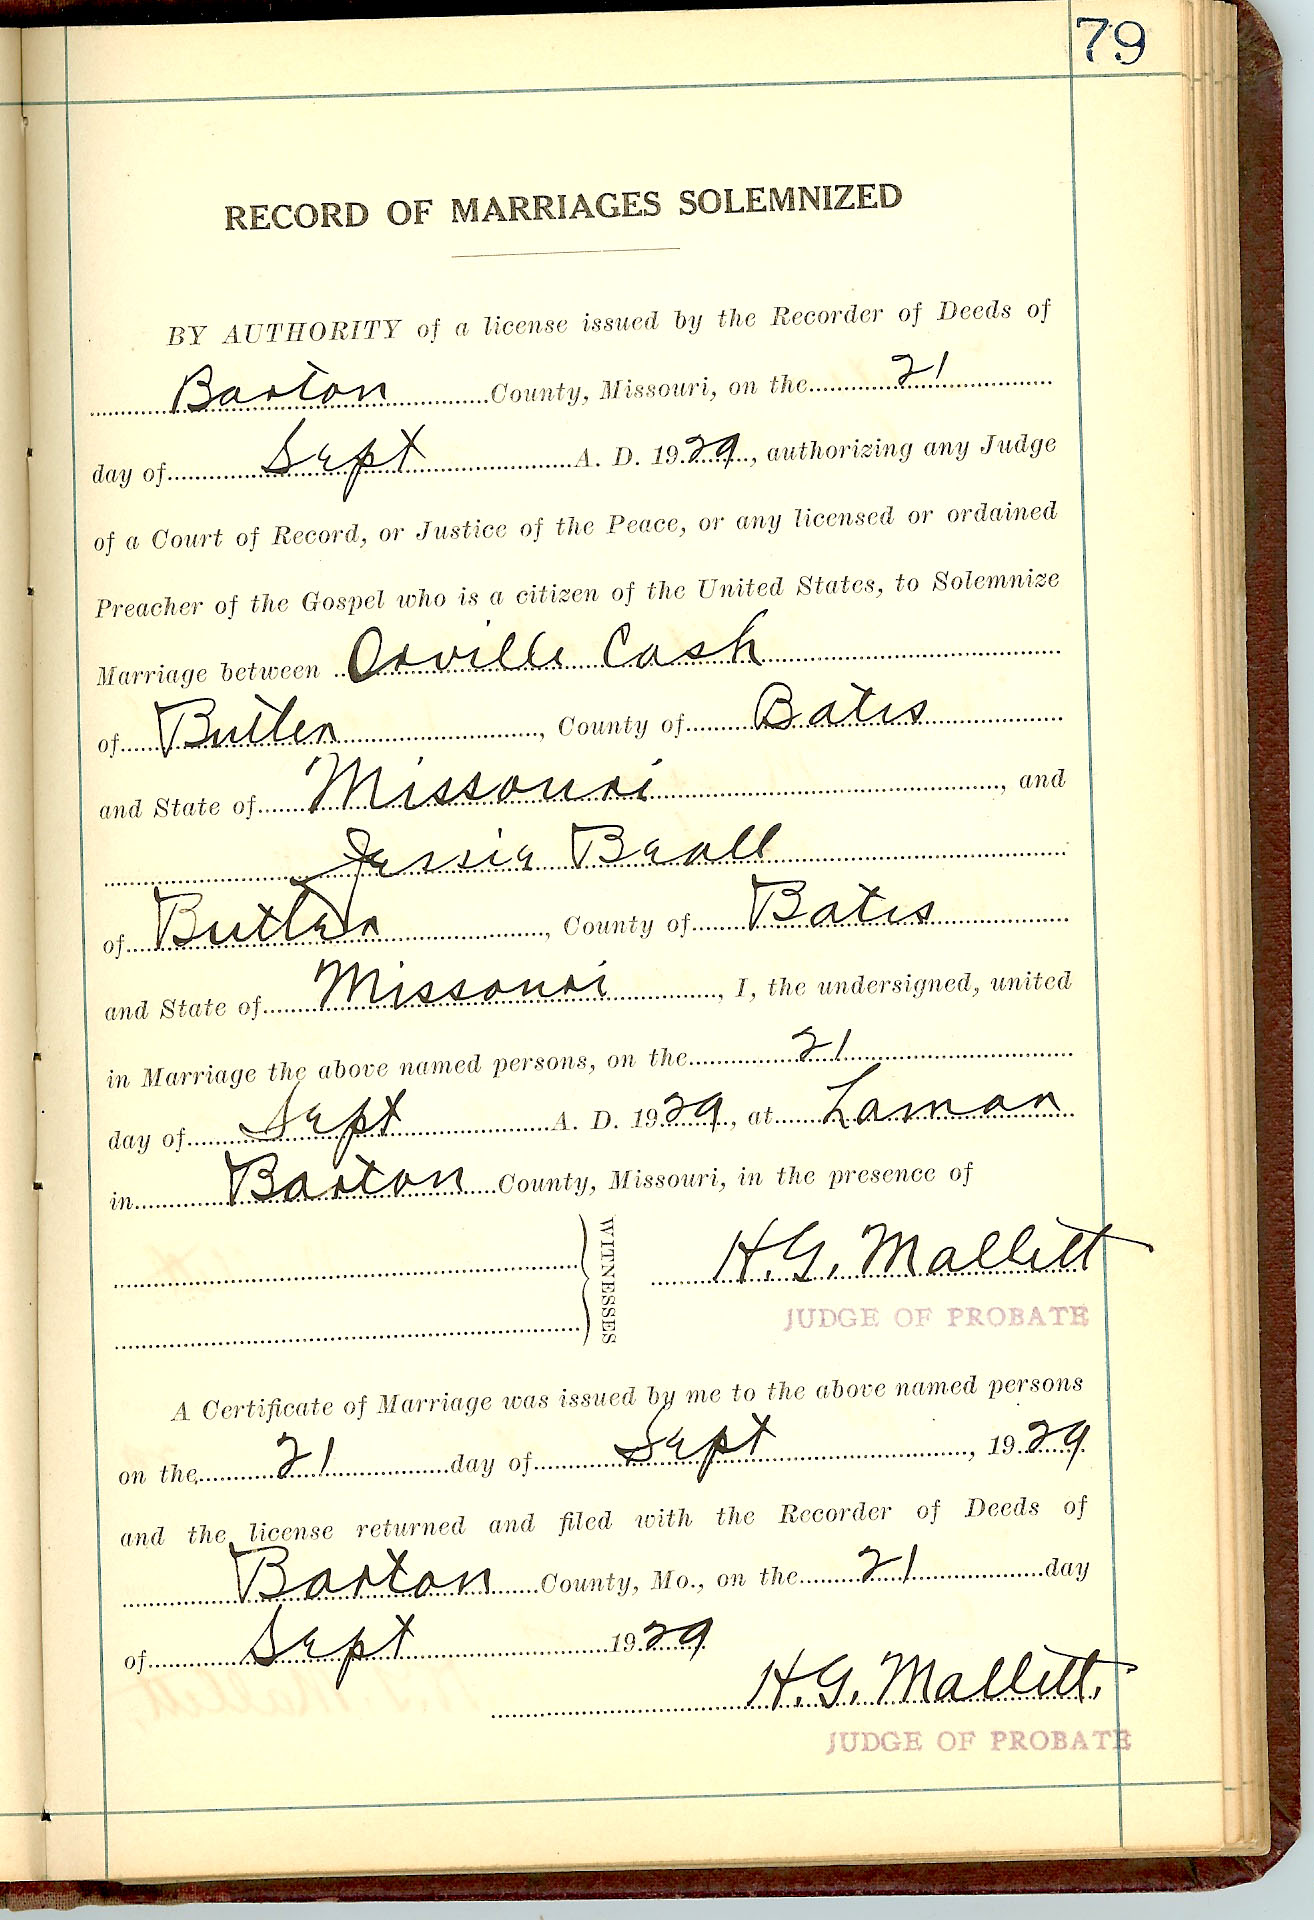 79
RECORD OF MARRIAGES SOLEMNIZED
BY AUTHORITY of a license issued by the Recorder of Deeds of
Barton County, Missouri, on the 21
day of Sept A. D. 1929, authorizing any Judge
of a Court of Record, or Justice of the Peace, or any licensed or ordained
Preacher of the Gospel who is a citizen of the United States, to Solemnize
Marriage between Orville Cash
of Butler, County of Bates
and State of Missouri, and
Jessie Beall
of Butler, County of Bates
and State of Missouri, I, the undersigned, united
in Marriage the above named persons, on the 21
day of Sept A. D. 1929, at Lamar
in Barton County, Missouri, in the presence of
WITNESSES
H. G. Mallett
JUDGE OF PROBATE
A Certificate of Marriage was issued by me to the above named persons
on the 21 day of Sept, 1929
and the license returned and filed with the Recorder of Deeds of
Barton County, Mo., on the 21 day
of Sept 1929
H. G. Mallett.
JUDGE OF PROBATE